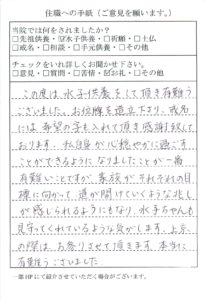 住職への手紙（ご意見を願います。）
当院では何をされましたか？
□先祖供養・☑水子供養・□祈願・□土仏
□戒名・□相談・□手元供養・□その他
チェックをいれ詳しくお聞かせ下さい。
□意見・□質問・□苦情・☑お礼・□その他
この度は水子供養をして頂き有難う
ございました。お位牌を建立下さり、戒名
には希望の字も入れて頂き感謝致して
おります。私自身が心穏やかに過ごす
ことができるようになりましたことが一番
有難いことですが、家族がそれぞれの目
標に向かって道が開けていくような兆し
が感じられるようにもなり、水子ちゃんも
見守ってくれているような気がします。上京
の際は、お参りさせて頂きます。本当に
有難うございました
一部HPにて紹介させていただく場合がございます。